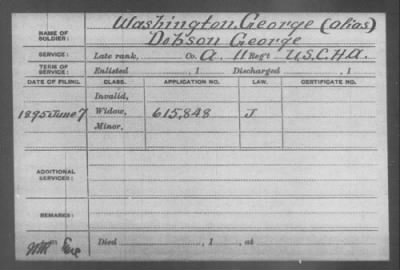 NAME OF SOLDIER: Washington, George (alias)
Dobson George
SERVICE: Late rank, Co. A, 11 Reg't U.S.C.H.A.
TERM OF SERVICE: Enlisted , 1 Discharged , 1
DATE OF FILING. CLASS. APPLICATION NO. LAW. CERTIFICATE NO.
Invalid,
1895 June 7 Widow, 615,848 J
Minor,
ADDITIONAL SERVICES:
REMARKS:
Died , 1 , at